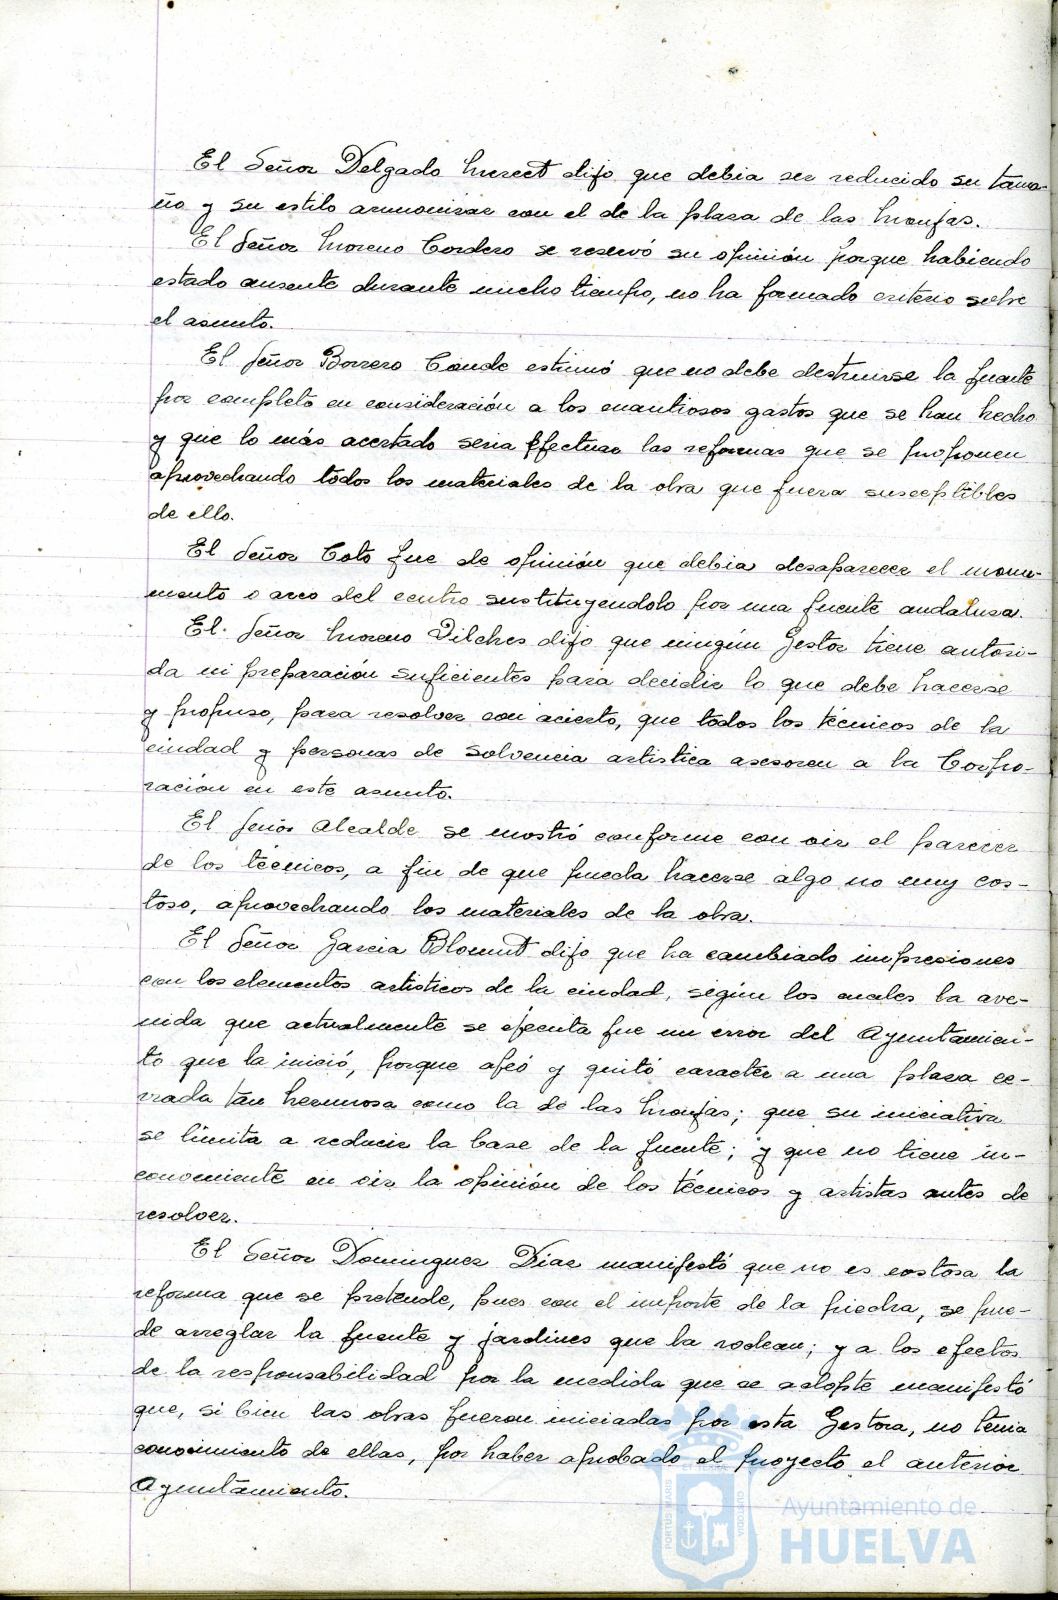 El Señor Delgado dijo que debia ser reducido su tama-
ño y su estilo armonizar con el de la plaza de las Monjas.
El Señor Moreno Cordero se reservó su opinión porque habiendo
estado ausente durante mucho tiempo, no ha formado criterio sobre
el asunto.
El Señor Borrero Conde estimó que no debe destruirse la fuente
por completo en consideración a los cuantiosos gastos que se han hecho
y que lo más acertado seria efectuar las reformas que se proponen
aprovechando todos los materiales de la obra que fuera susceptibles
de ello.
El Señor Coto fue de opinión que debia desaparecer el monu-
mento o arco del centro sustituyendolo por una fuente andaluza.
El Señor Moreno Vilches dijo que ningún Gestor tiene autori-
da ni preparación suficientes para decidir lo que debe hacerse
y propuso, para resolver con acierto, que todos los técnicos de la
ciudad y personas de solvencia artistica asesoren a la Corpo-
ración en este asunto.
El Señor Alcalde se mostró conforme con oir el parecer
de los técnicos, a fin de que pueda hacerse algo no muy cos-
toso, aprovechando los materiales de la obra.
El Señor Garcia Blomut dijo que ha cambiado impresiones
con los elementos artisticos de la ciudad, según los cuales la ave-
nida que actualmente se ejecuta fue un error del Ayuntamien-
to que la inició, porque afeó y quitó caracter a una plaza ce-
rrada tan hermosa como la de las Monjas; que su iniciativa
se limita a reducir la base de la fuente; y que no tiene in-
conveniente en oir la opinión de los técnicos y artistas antes de
resolver.
El Señor Dominguez Diaz manifestó que no es costosa la
reforma que se pretende, pues con el importe de la piedra, se pue-
de arreglar la fuente y jardines que la rodean; y a los efectos
de la responsabilidad por la medida que se adopte manifestó
que, si bien las obras fueron iniciadas por esta Gestora, no tenia
conocimiento de ellas, por haber aprobado el proyecto el anterior
Ayuntamiento.
PORTUS MARIS CUSTODIA
Ayuntamiento de
HUELVA